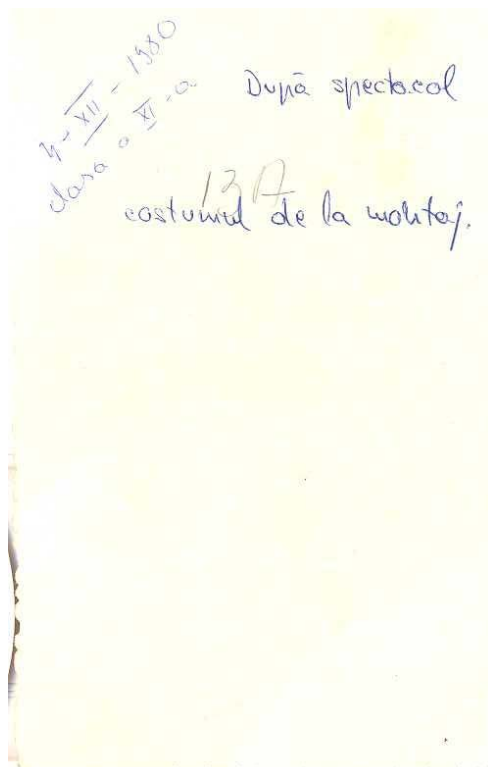 4-XII-1980
clasa a XI-a
După spectacol
13A
costumul de la montaj.